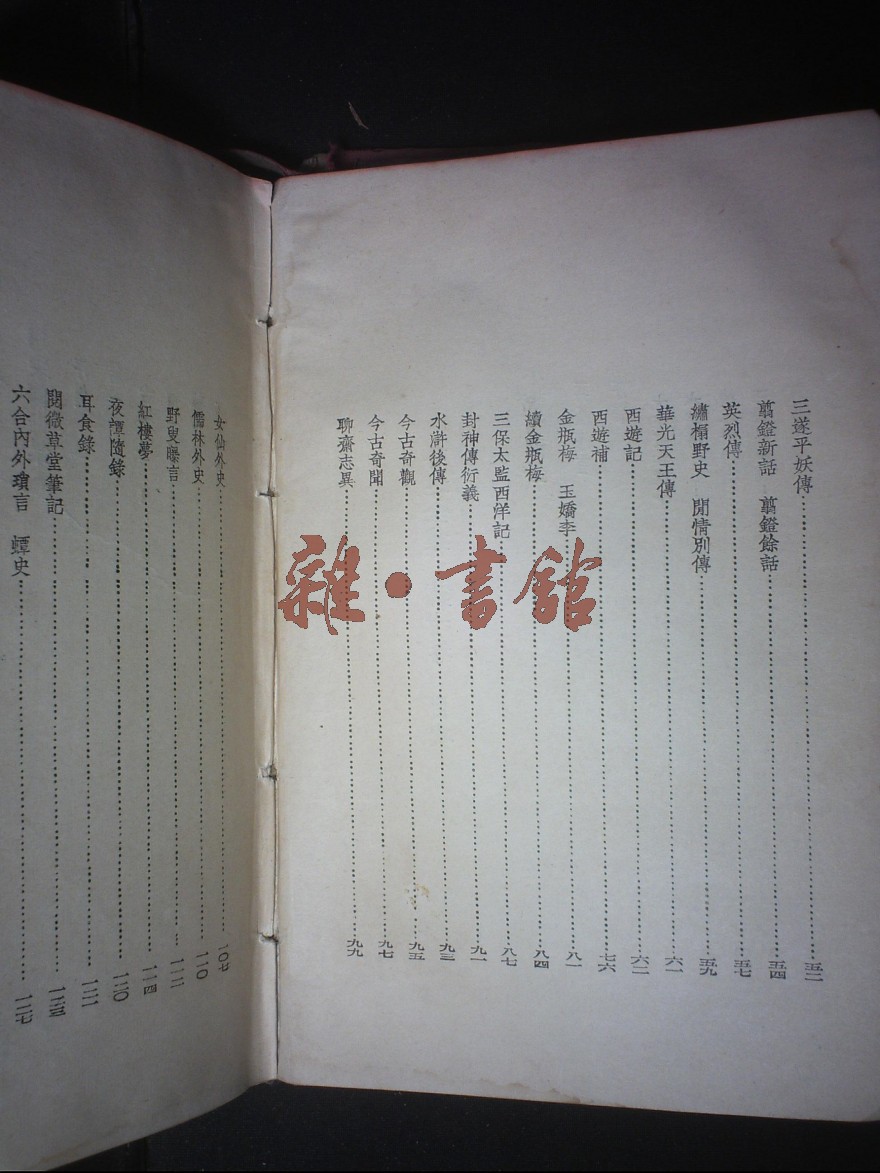 三遂平妖傳 五二
翦鐙新話 翦鐙餘話 五四
英烈傳 五七
繡榻野史 閒情別傳 五九
華光天王傳 六一
西遊記 六二
西遊補 七六
金瓶梅 玉嬌李 八一
續金瓶梅 八四
三保太監西洋記 八七
封神傳衍義 九一
水滸後傳 九三
今古奇觀 九五
今古奇聞 九七
聊齋志異 九九
女仙外史 一〇七
儒林外史 一一〇
野叟曝言 一一二
紅樓夢 一一四
夜譚隨錄 一二〇
耳食錄 一二二
閱微草堂筆記 一二三
六合內外瑣言 蟫史 一二七
雜·書館